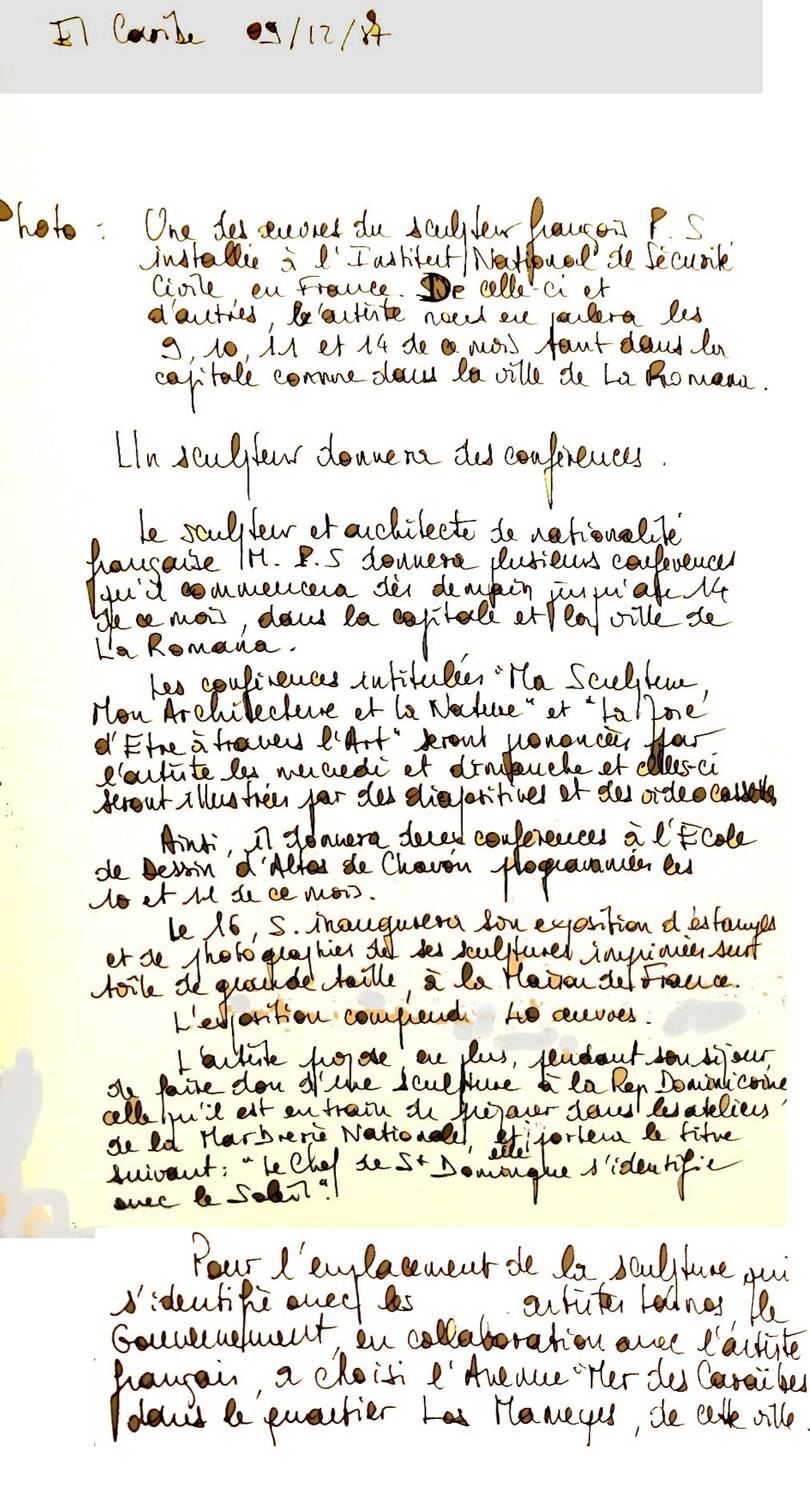 El Caribe 09/12/87
Photo : Une des œuvres du sculpteur français P. S
installée à l'Institut National de Sécurité
Civile, en France. De celle-ci et
d'autres, l'artiste nous en parlera les
9, 10, 11 et 14 de ce mois tant dans la
capitale comme dans la ville de La Romana.
Un sculpteur donnera des conférences.
Le sculpteur et architecte de nationalité
française M. P. S donnera plusieurs conférences
qu'il commencera dès demain jusqu'au 14
de ce mois, dans la capitale et la ville de
La Romana.
Les conférences intitulées "Ma Sculpture,
Mon Architecture et la Nature" et "La Joie
d'Etre à travers l'Art" seront prononcées par
l'artiste les mercredi et dimanche et celles-ci
seront illustrées par des diapositives et des videocassettes
Ainsi, il donnera deux conférences à l'Ecole
de Dessin d'Altos de Chavón programmées les
10 et 11 de ce mois.
Le 16, S. inaugurera son exposition d'estampes
et de photographies de ses sculptures imprimées sur
toile de grande taille, à la Maison de France.
L'exposition comprend 40 œuvres.
L'artiste propose en plus, pendant son séjour,
de faire don d'une sculpture à la Rep Dominicaine
celle qu'il est en train de préparer dans les ateliers
de la Marbrerie Nationale, et portera le titre
suivant : "Le Chef de St Domingue elle s'identifie
avec le Soleil".
Pour l'emplacement de la sculpture qui
s'identifie avec les artistes taïnos, le
Gouvernement, en collaboration avec l'artiste
français, a choisi l'Avenue "Mer des Caraïbes
dans le quartier Los Mameyes, de cette ville.